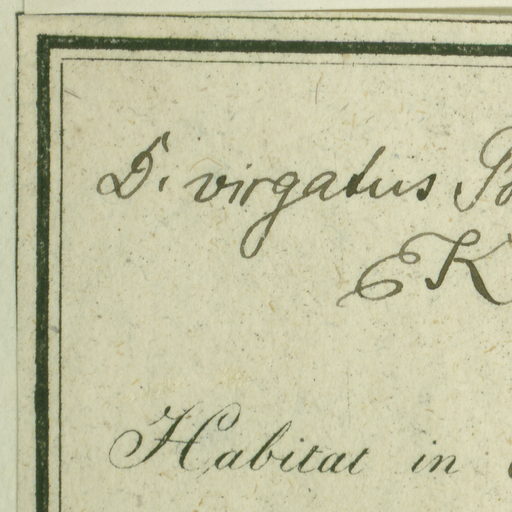 D. virgatus
EK
Habitat in